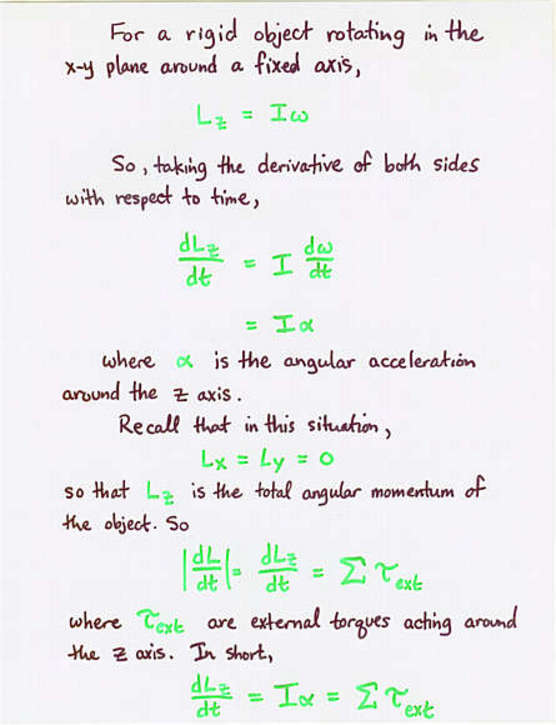 For a rigid object rotating in the
x-y plane around a fixed axis,
L_z = Iω
So, taking the derivative of both sides
with respect to time,
dL_z/dt = I dω/dt
= Iα
where α is the angular acceleration
around the z axis.
Recall that in this situation,
Lx = Ly = 0
so that L_z is the total angular momentum of
the object. So
|dL/dt| = dL_z/dt = Σ τ_ext
where τ_ext are external torques acting around
the z axis. In short,
dL_z/dt = Iα = Σ τ_ext